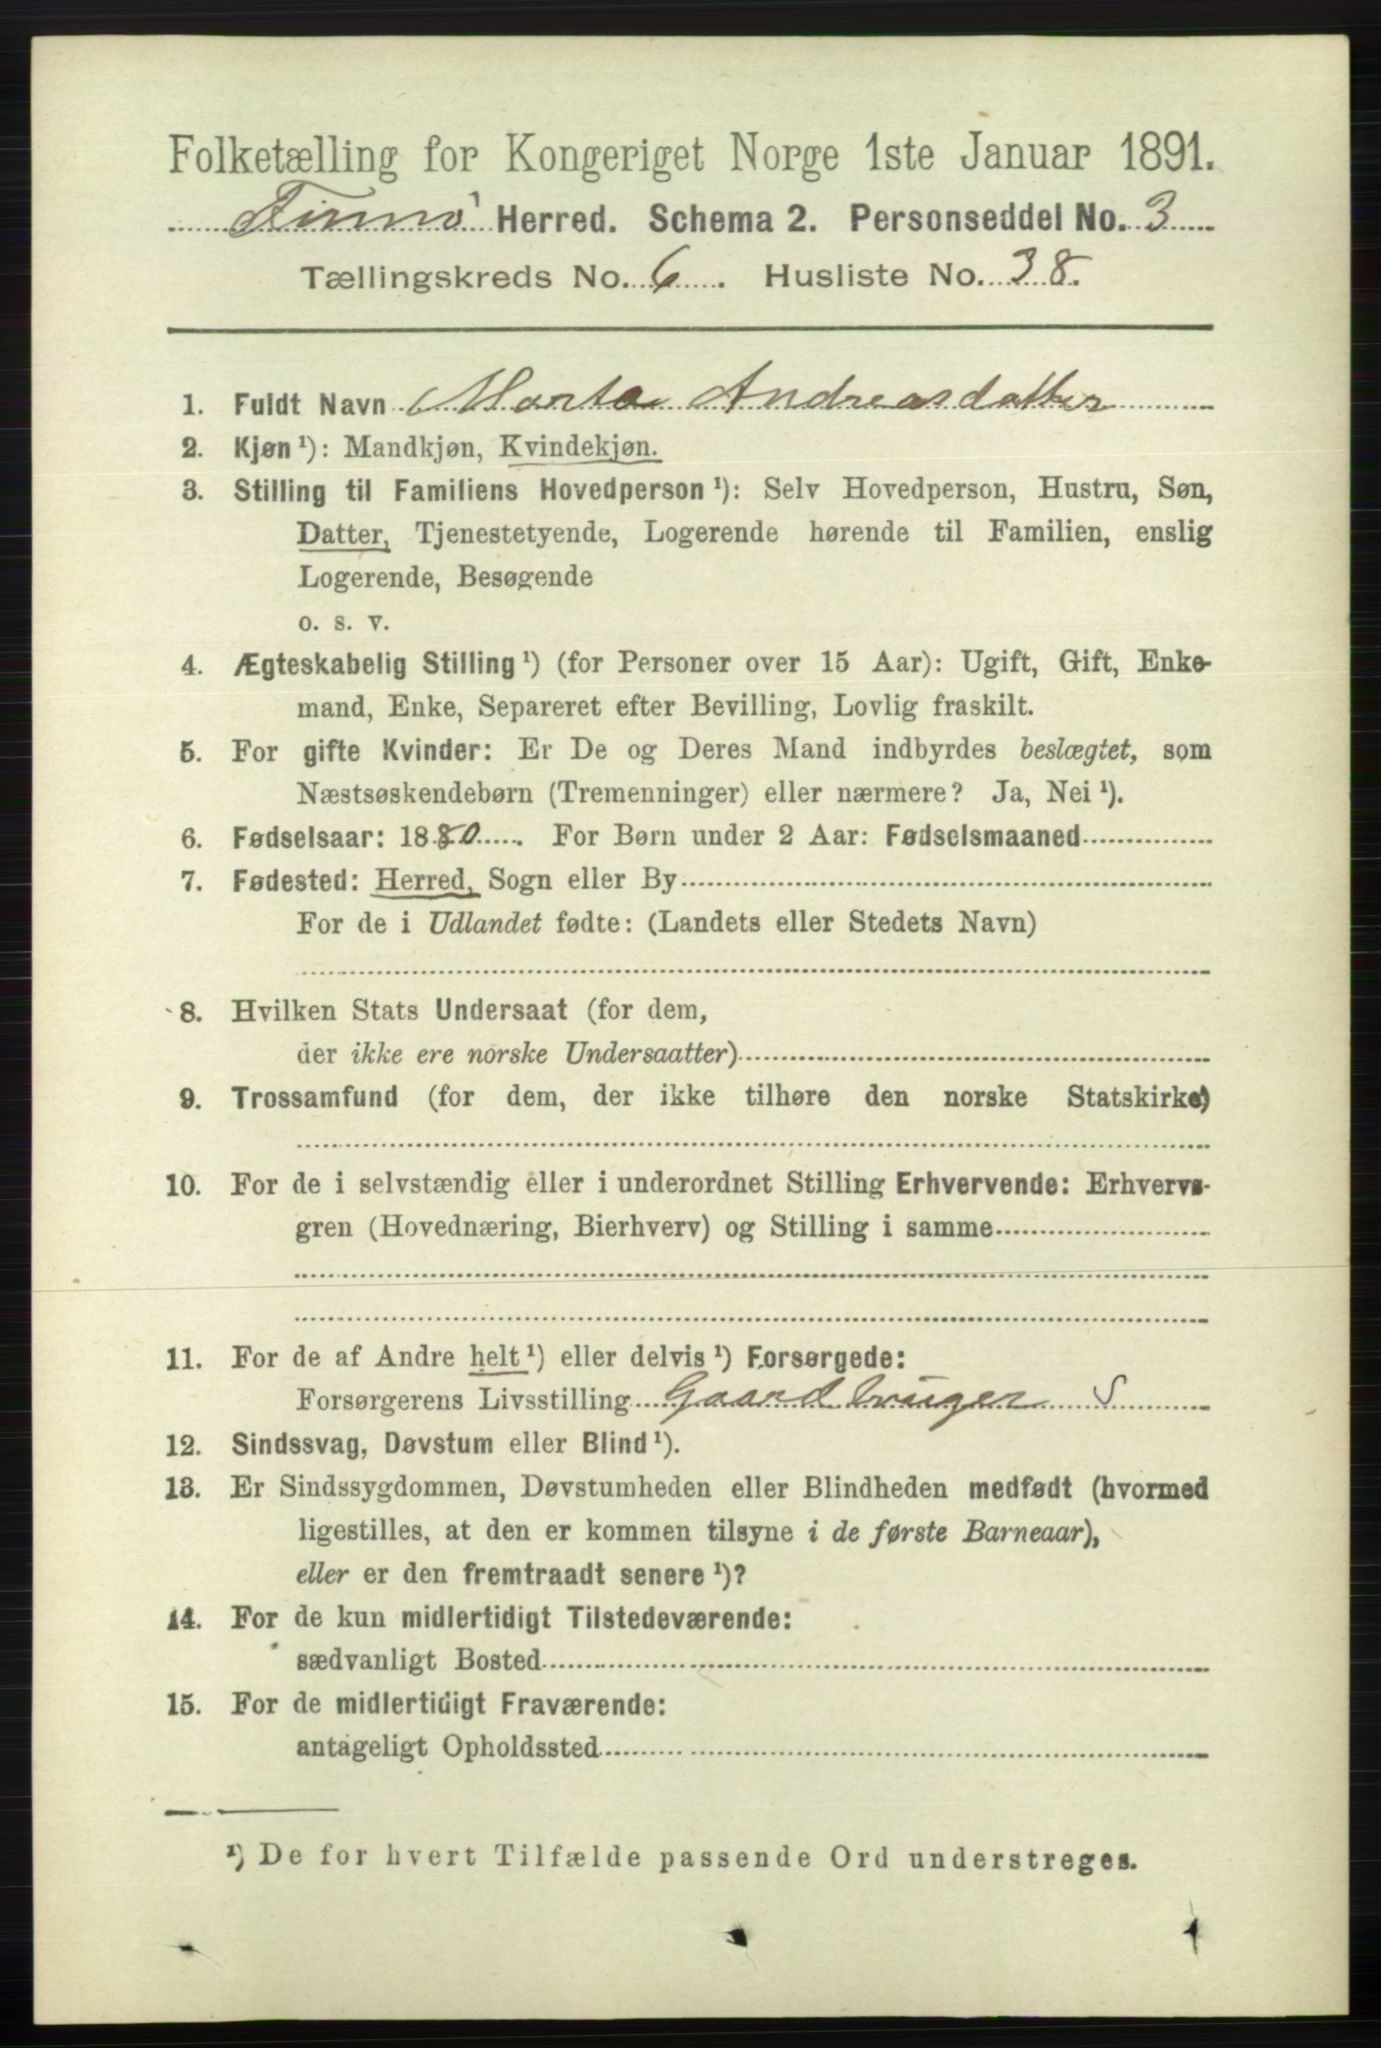 Folketælling for Kongeriget Norge 1ste Januar 1891.
Finnø Herred. Schema 2. Personseddel No. 3
Tællingskreds No. 6. Husliste No. 38.
1. Fuldt Navn Marta Andreasdatter
2. Kjøn ¹): Mandkjøn, Kvindekjøn.
3. Stilling til Familiens Hovedperson ¹): Selv Hovedperson, Hustru, Søn,
Datter, Tjenestetyende, Logerende hørende til Familien, enslig
Logerende, Besøgende
o. s. v.
4. Ægteskabelig Stilling ¹) (for Personer over 15 Aar): Ugift, Gift, Enke-
mand, Enke, Separeret efter Bevilling, Lovlig fraskilt.
5. For gifte Kvinder: Er De og Deres Mand indbyrdes beslægtet, som
Næstsøskendebørn (Tremenninger) eller nærmere? Ja, Nei ¹).
6. Fødselsaar: 1880. For Børn under 2 Aar: Fødselsmaaned
7. Fødested: Herred, Sogn eller By
For de i Udlandet fødte: (Landets eller Stedets Navn)
8. Hvilken Stats Undersaat (for dem,
der ikke ere norske Undersaatter)
9. Trossamfund (for dem, der ikke tilhøre den norske Statskirke)
10. For de i selvstændig eller i underordnet Stilling Erhvervende: Erhvervs-
gren (Hovednæring, Bierhverv) og Stilling i samme
11. For de af Andre helt ¹) eller delvis ¹) Forsørgede:
Forsørgerens Livsstilling Gaardbruger S
12. Sindssvag, Døvstum eller Blind ¹).
13. Er Sindssygdommen, Døvstumheden eller Blindheden medfødt (hvormed
ligestilles, at den er kommen tilsyne i de første Barneaar),
eller er den fremtraadt senere ¹)?
14. For de kun midlertidigt Tilstedeværende:
sædvanligt Bosted
15. For de midlertidigt Fraværende:
antageligt Opholdssted
¹) De for hvert Tilfælde passende Ord understreges.